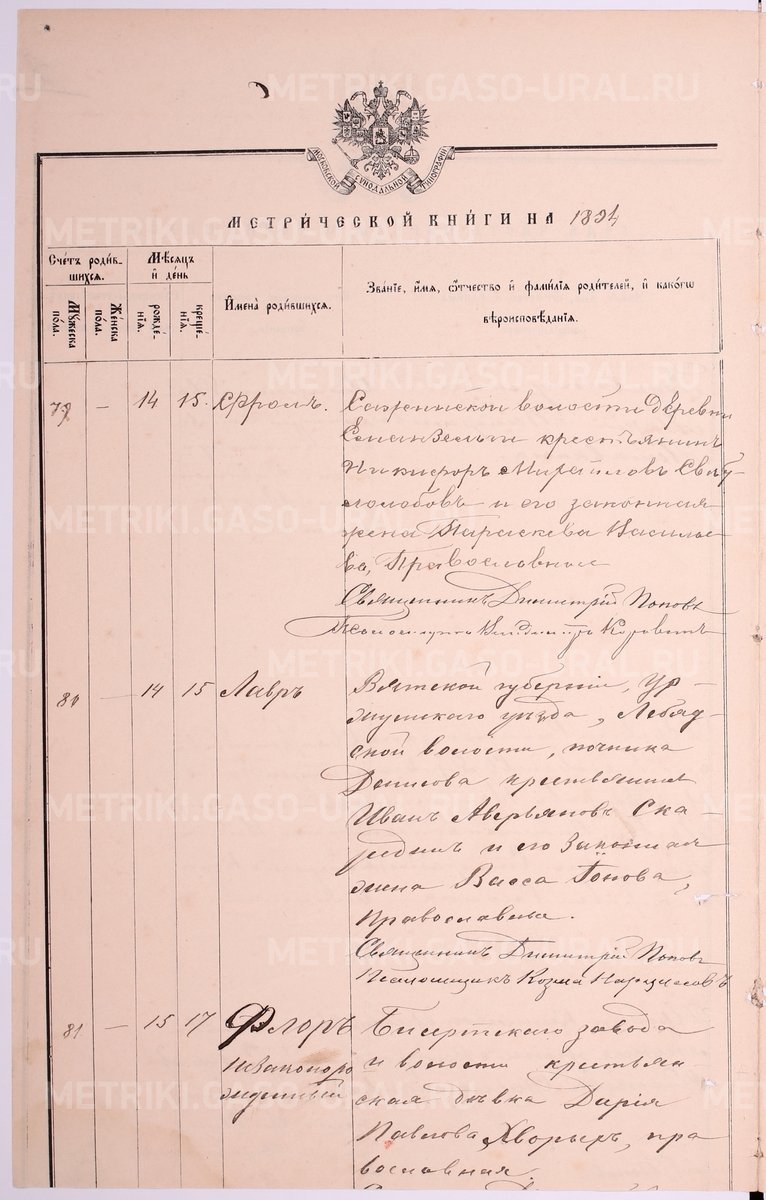 METRIKI.GASO-URAL.RU
МОСКОВСКОЙ СѴНОДАЛЬНОЙ ТИПОГРАФІИ
МЕТРИ́ЧЕСКОЙ КНИ́ГИ НА 1894
Сче́тъ роди́в-
шихся.
Му́жеска по́ла.
Же́нска по́ла.
Мѣ́сяцъ и де́нь
рожде́-
нія.
креще́-
нія.
Имена̀ роди́вшихся.
Зва́ніе, и́мя, ѻ҆́тчество и фами́лія роди́телей, и како́гѡ
вѣроисповѣ́данія.
79 — 14 15. Фролъ.
Саженской волости деревни
крестьянинъ
Никифоръ Михаиловъ
и его законная
жена Параскева Василье
ва, Православные
Священникъ Димитрій Поповъ
80 — 14 15 Лавръ
Вятской губерніи, Ур-
жумскаго уѣзда, Лебяд-
ской волости, починка
Денисова крестьянинъ
Иванъ Аверьяновъ Ска-
реднинъ и его законная
жена Васса Іонова,
православные.
Священникъ Димитрій Поповъ
Псаломщикъ Козма
81 — 15 17 Флоръ
незаконоро
жденный
Бисертскаго завода
и волости крестьян
ская дѣвка Дарія
Павлова Хворыхъ, пра
вославная.